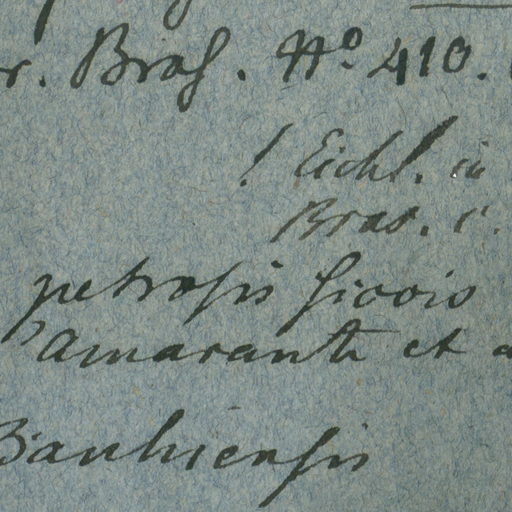 r. Bras. No 410.
! Eichl. in
Bras. 
petrosis siccis
Amaranti et
Bahiensis